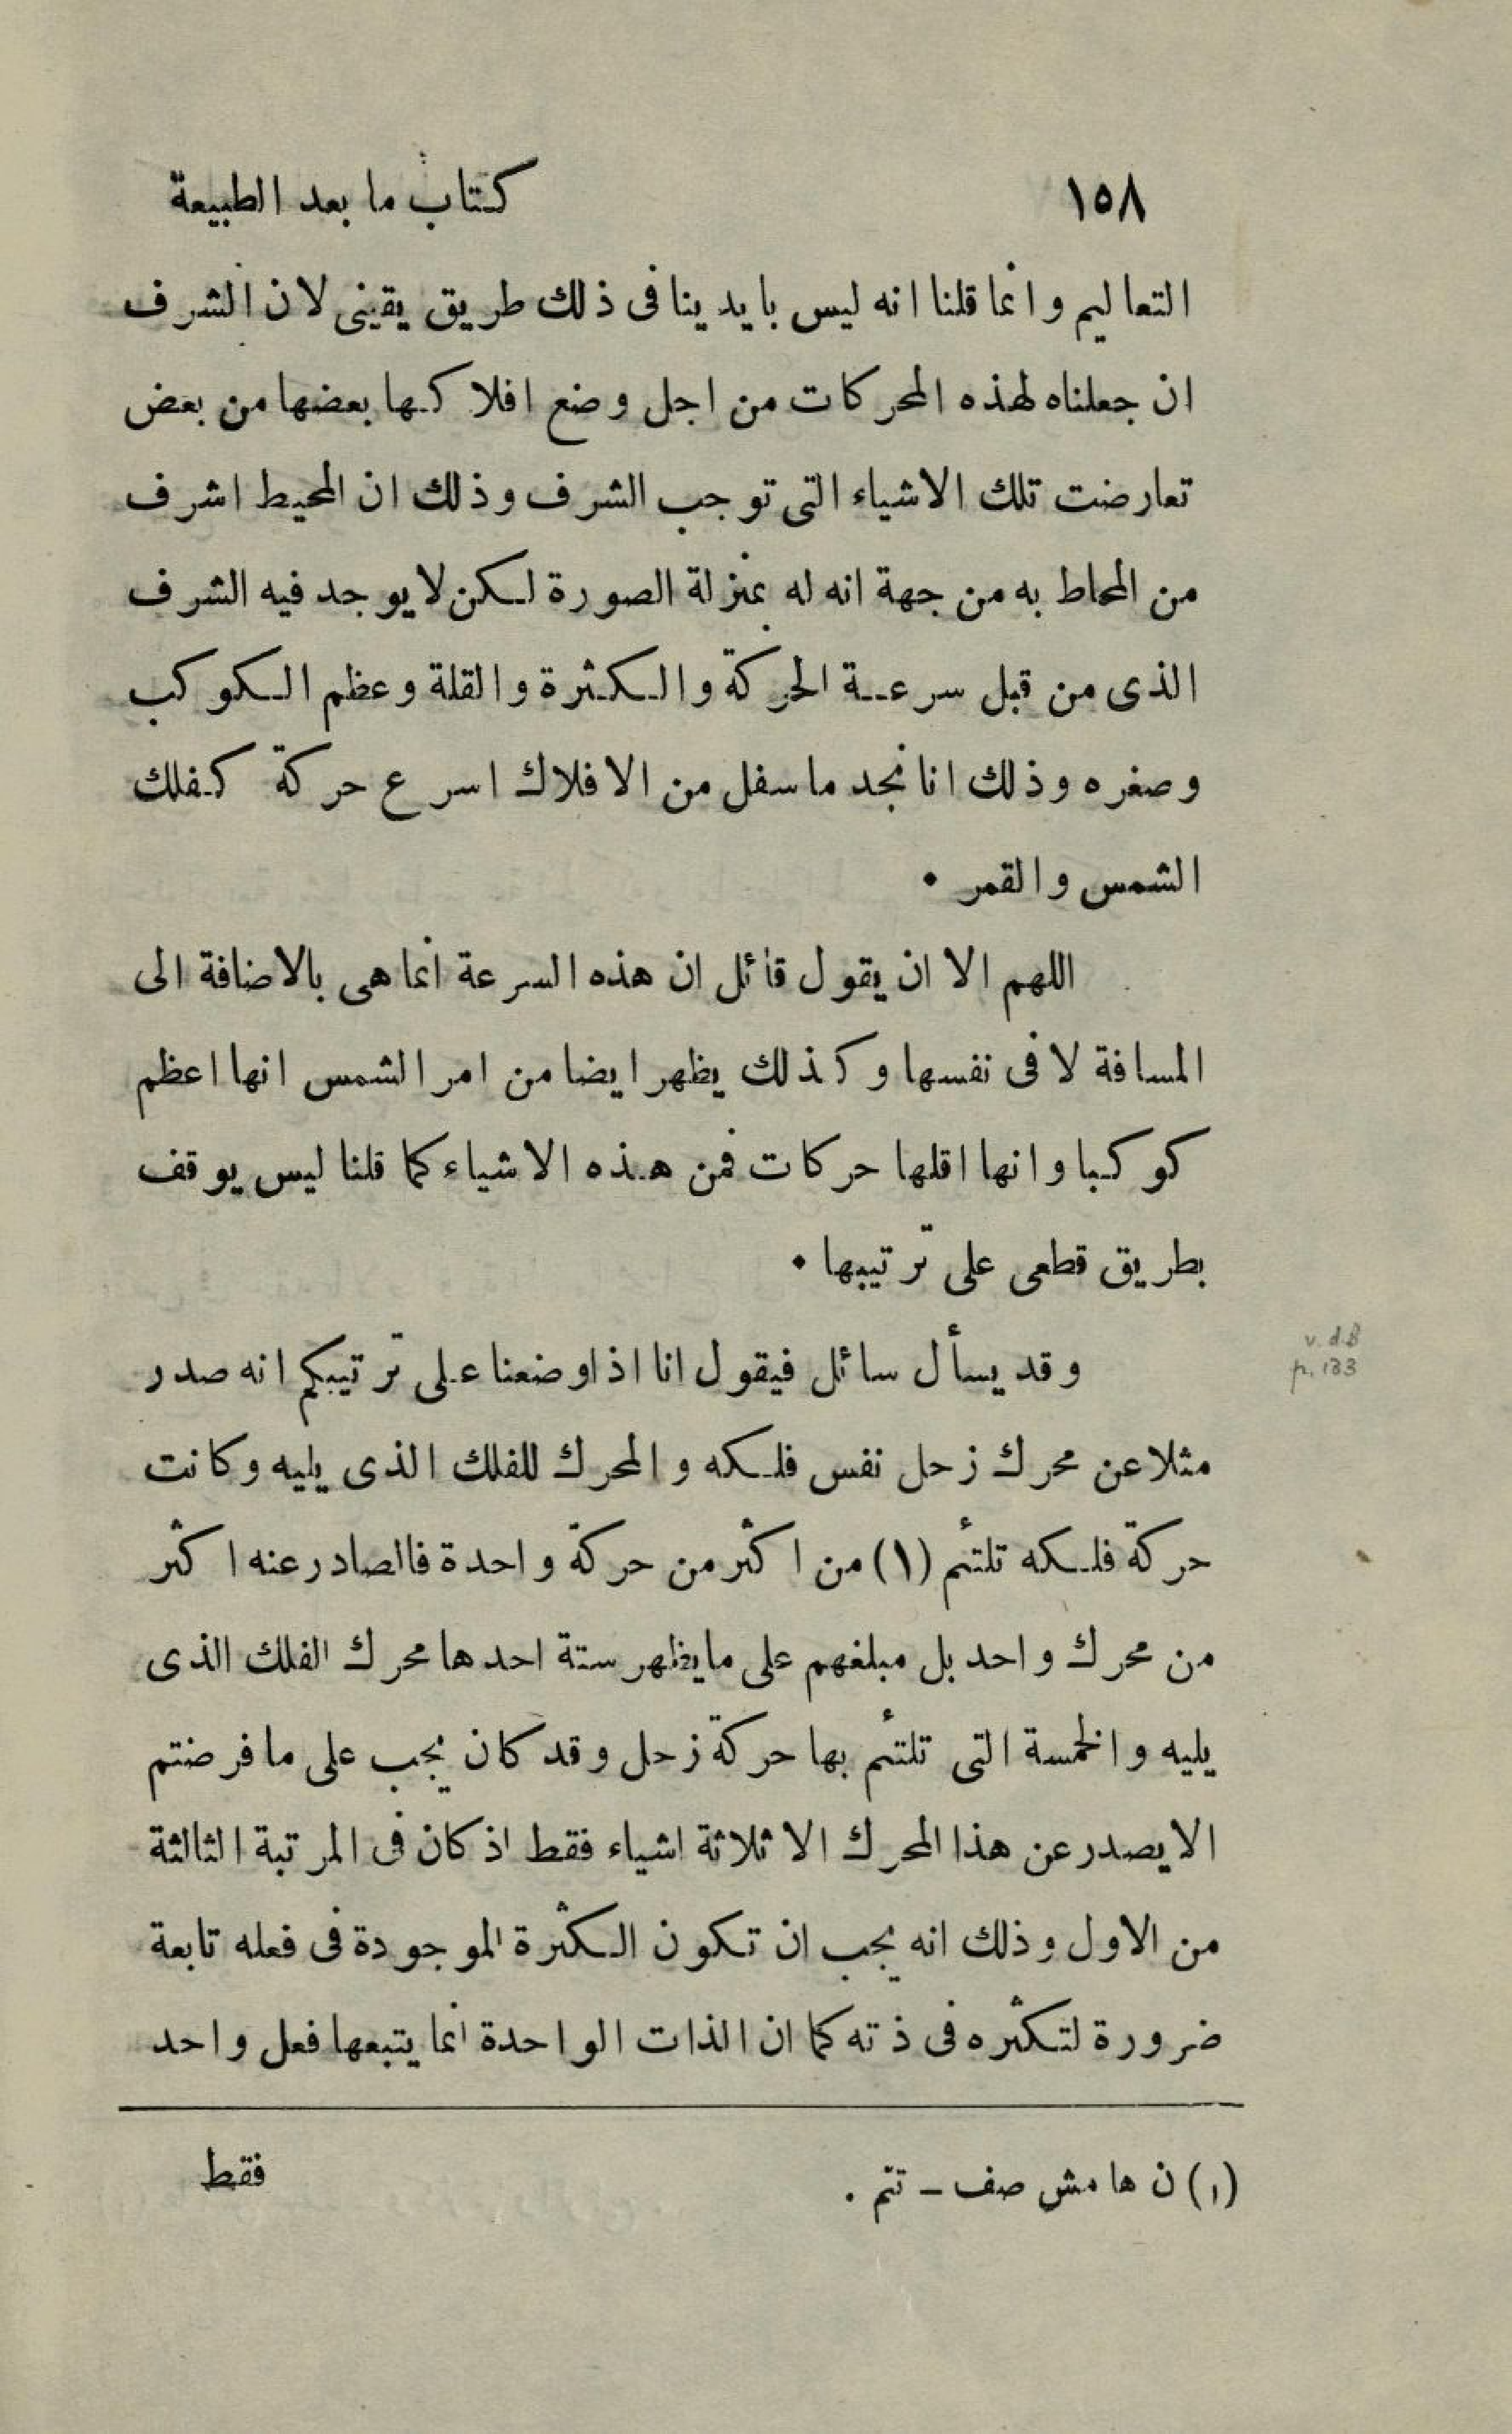 ١٥٨ كتاب ما بعد الطبيعة
التعاليم وانما قلنا انه ليس بايدينا فى ذلك طريق يقينى لان الشرف
ان جعلناه لهذه المحركات من اجل وضع افلاكها بعضها من بعض
تعارضت تلك الاشياء التى توجب الشرف وذلك ان المحيط اشرف
من المحاط به من جهة انه له بمنزلة الصورة لكن لا يوجد فيه الشرف
الذى من قبل سرعة الحركة والكثرة والقلة وعظم الكوكب
وصغره وذلك انا نجد ما سفل من الافلاك اسرع حركة كفلك
الشمس والقمر •
اللهم الا ان يقول قائل ان هذه السرعة انما هى بالاضافة الى
المسافة لا فى نفسها وكذلك يظهر ايضا من امر الشمس انها اعظم
كوكبا وانها اقلها حركات فمن هذه الاشياء كما قلنا ليس يوقف
بطريق قطعى على ترتيبها •
وقد يسأل سائل فيقول انا اذا وضعنا على ترتيبكم انه صدر
v. d. B
p. 133
مثلا عن محرك زحل نفس فلكه والمحرك للفلك الذى يليه وكانت
حركة فلكه تلتئم (١) من اكثر من حركة واحدة فاالصادر عنه اكثر
من محرك واحد بل مبلغهم على ما يظهر ستة احدها محرك الفلك الذى
يليه والخمسة التى تلتئم بها حركة زحل وقد كان يجب على ما فرضتم
الا يصدر عن هذا المحرك الا ثلاثة اشياء فقط اذ كان فى المرتبة الثالثة
من الاول وذلك انه يجب ان تكون الكثرة الموجودة فى فعله تابعة
ضرورة لتكثره فى ذته كما ان الذات الواحدة انما يتبعها فعل واحد
(١) ن هامش صف - تتم . فقط